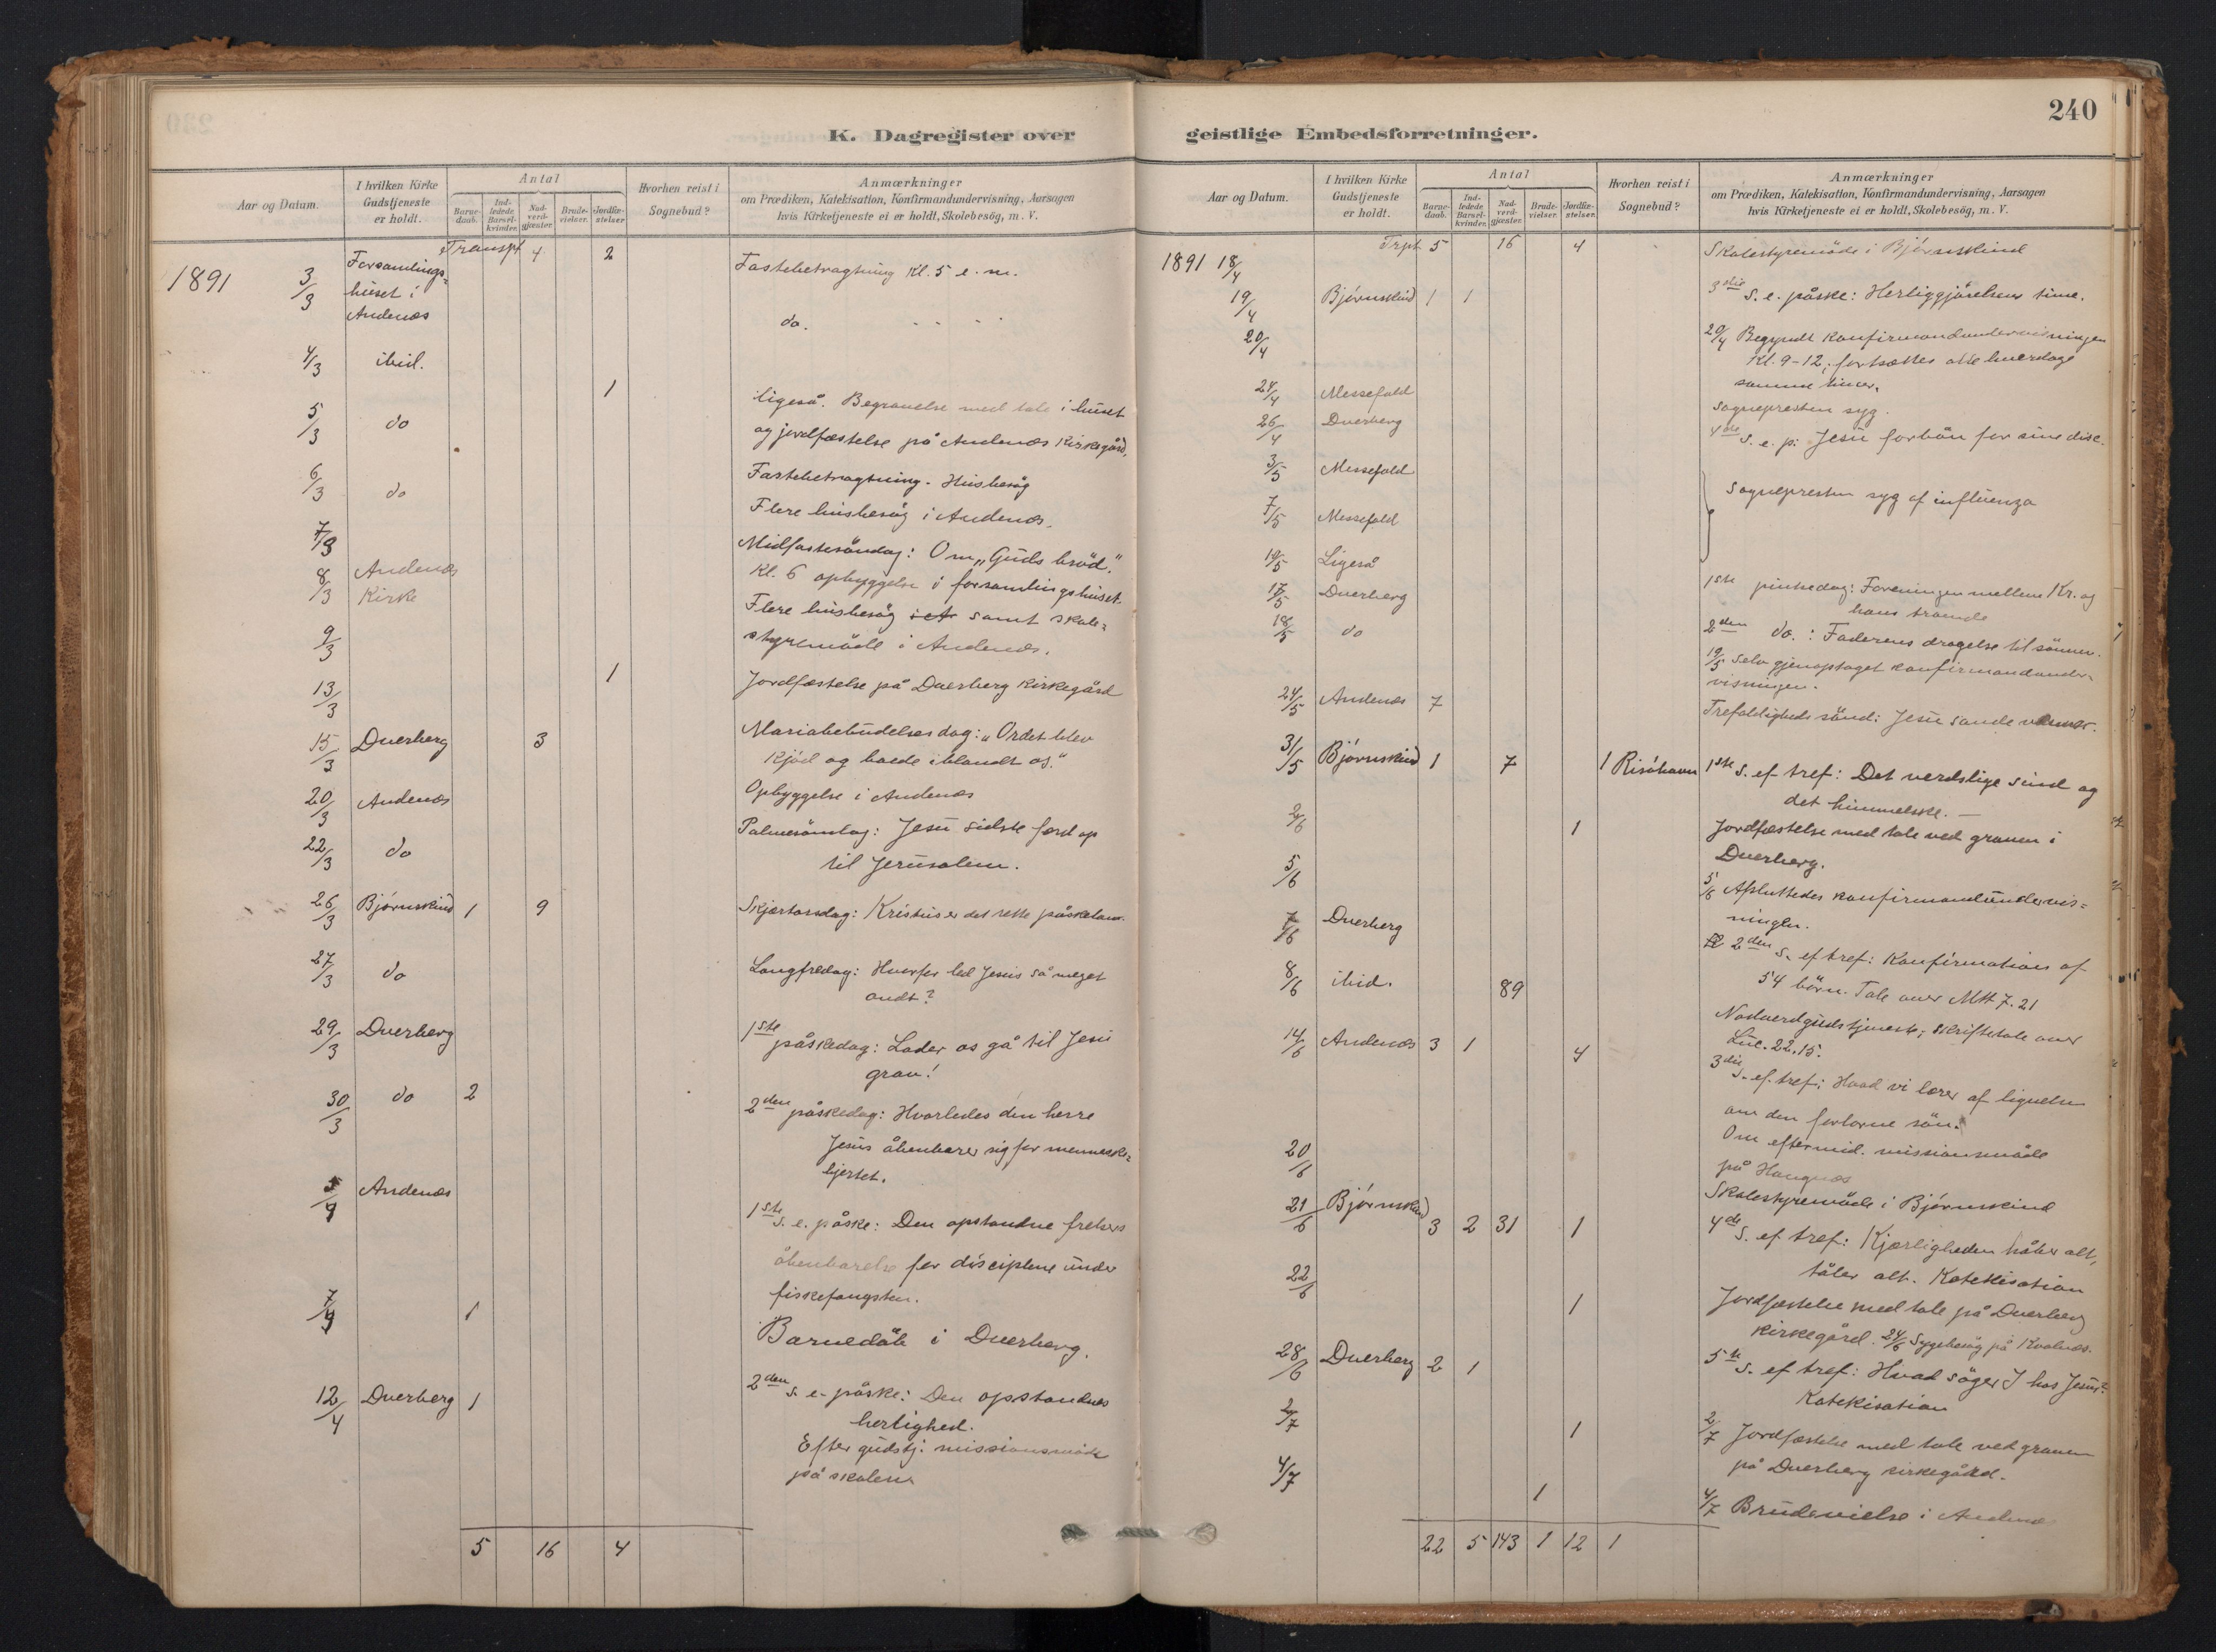 K. Dagregister over
Aar og Datum.
I hvilken Kirke
Gudstjeneste
er holdt.
Antal
Barne-
daab.
Ind-
ledede
Barsel-
kvinder.
Nad-
verd-
gjæster.
Brude-
vielser.
Jordfæ-
stelser.
Hvorhen reist i
Sognebud?
Anmærkninger
om Prædiken, Katekisation, Konfirmandundervisning, Aarsagen
hvis Kirketjeneste ei er holdt, Skolebesög, m. V.
Transpt 4 2
1891 3/3 Forsamlings-
huset i
Andenæs
Fastebetragtning Kl. 5 e. m.
4/3 ibid. do. - - - -
5/3 do 1 ligeså. Begravelse med tale i huset
og jordfæstelse på Andenæs Kirkegård,
6/3 do Fastebetragtning. Husbesög
7/3 Flere husbesög i Andenæs.
8/3 Andenæs
Kirke
Midfastesöndag: Om „Guds bröd".
Kl. 6 opbyggelse i forsamlingshuset.
9/3 Flere husbesög samt skole-
styremöde i Andenæs.
13/3 1 Jordfæstelse på Dverberg Kirkegård
15/3 Dverberg 3 Mariabebudelsesdag: „Ordet blev
Kjöd og boede iblandt os."
20/3 Andenæs Opbyggelse i Andenæs
22/3 do Palmesöndag: Jesu sidste færd op
til Jerusalem.
26/3 Björnskind 1 9 Skjærtorsdag: Kristus er det rette påskelam.
27/3 do Langfredag: Hvorfor led Jesus så meget
ondt?
29/3 Dverberg 1ste påskedag: Lader os gå til Jesu
grav!
30/3 do 2 2den påskedag: Hvorledes den herre
Jesus åbenbarer sig for menneske-
hjertet.
5/4 Andenæs 1ste s. e. påske: Den opstandne frelsers
åbenbarelse for disciplene under
fiskefangsten.
7/4 1 Barnedåb i Dverberg.
12/4 Dverberg 1 2den s. e. påske: Den opstandnes
herlighed.
Efter gudstj. missionsmöde
på skolen
5 16 4
240
geistlige Embedsforretninger.
Aar og Datum.
I hvilken Kirke
Gudstjeneste
er holdt.
Antal
Barne-
daab.
Ind-
ledede
Barsel-
kvinder.
Nad-
verd-
gjæster.
Brude-
vielser.
Jordfæ-
stelser.
Hvorhen reist i
Sognebud?
Anmærkninger
om Prædiken, Katekisation, Konfirmandundervisning, Aarsagen
hvis Kirketjeneste ei er holdt, Skolebesög, m. V.
Trpt 5 16 4
1891 18/4 Skolestyremöde i Björnskind
19/4 Björnskind 1 1 3die s. e. påske: Herliggjörelsens time.
20/4 20/4 Begyndt Konfirmandundervisningen
Kl. 9-12; fortsættes alle hverdage
samme timer.
24/4 Messefald sognepresten syg.
26/4 Dverberg 4de s. e. p: Jesu forbön for sine disc.
3/5 Messefald
7/5 Messefald Sognepresten syg af influenza
10/5 Ligeså
17/5 Dverberg 1ste pinsedag: Foreningen mellem Kr. og
hans troende
18/5 do 2den do.: Faderens dragelse til sönnen.
19/5 Selv gjenoptaget konfirmandunder-
visningen.
24/5 Andenæs 7 Trefoldigheds sönd: Jesu sande venner.
31/5 Björnskind 1 7 1 Risöhavn 1ste s. ef tref: Det verdslige sind og
det himmelske. —
2/6 1 Jordfæstelse med tale ved graven i
Dverberg.
5/6 5/6 Afsluttedes konfirmandundervis-
ningen.
7/6 Dverberg 2den s. ef tref: Konfirmation af
54 börn. Tale over Mtt 7.21
8/6 ibid. 89 Nadverdgudstjeneste; skriftetale over
Luc. 22,15.
14/6 Andenæs 3 1 4 3die s. ef. tref: Hvad vi lærer af lignelsen
om den fortorne sön.
Om eftermid. missionsmöde
på Haugnæs
20/6 Skolestyremöde i Björnskind
21/6 Björnskind 3 2 31 1 4de s. ef tref: Kjærligheden håber alt,
tåler alt. Katekisation
22/6 1 Jordfæstelse med tale på Dverberg
kirkegård. 24/6 Sygebesög på Kvalnæs.
28/6 Dverberg 2 1 5te s. ef tref: Hvad söger I hos Jesus?
Katekisation
2/7 1 2/7 Jordfæstelse med tale ved graven
på Dverberg kirkegård.
4/7 1 4/7 Brudevielse i Andenæs
22 5 143 1 12 1